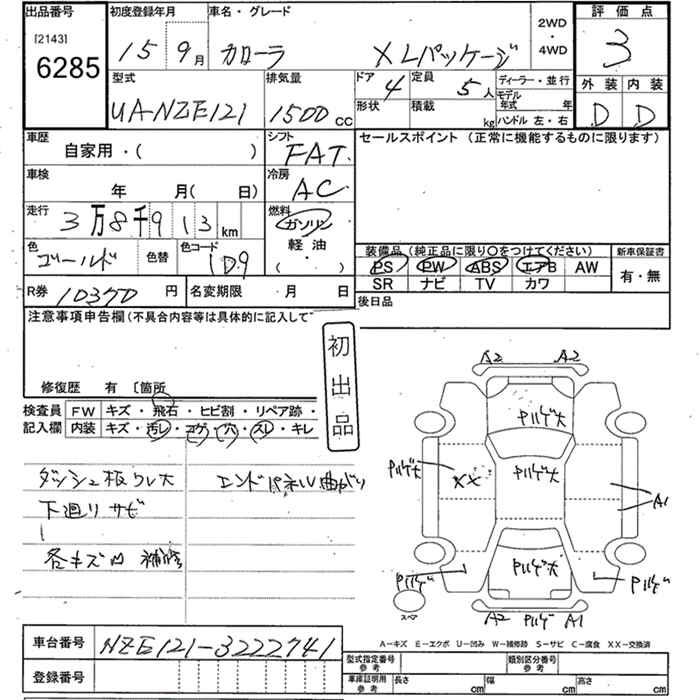 出品番号 初度登録年月 車名・グレード 2WD・4WD 評価点
[2143] 15 9月 カローラ XLパッケージ 3
6285
型式 排気量 ドア 4 定員 5人 ディーラー・並行 外装 内装
UA-NZE121 1500cc 形状 積載 kg モデル年式 年 D D
ハンドル 左・右
車歴 シフト セールスポイント (正常に機能するものに限ります)
自家用・( ) FAT
車検 冷房
年 月( 日) AC
走行 燃料
3万8千913km ガソリン
色 色替 色コード 軽油 装備品 (純正品に限り○をつけてください) 新車保証書
ゴールド 1D9 ・( ) PS PW ABS エアB AW 有・無
SR ナビ TV カワ
R券 10370円 名変期限 ・ 月 日 後日品
注意事項申告欄(不具合内容等は具体的に記入して
初出品
修復歴 有 〔箇所
検査員 FW キズ・飛石・ヒビ割・リペア跡・
記入欄 内装 キズ・汚レ・コゲ・穴・スレ・キレ
ダッシュ板ワレ大 エンドパネル曲がり
下廻リサビ
各キズ凹 補修
A2 A2
Pハゲ大
Pハゲ大 XX Pハゲ大 A1
Pハゲ大
Pハゲ Pハゲ
スペア
A2 Pハゲ A1
A-キズ E-エクボ U-凹み W-補修跡 S-サビ C-腐食 XX-交換済
車台番号 NZE121-3222741
登録番号
型式指定番号 参考 類別区分番号 参考
車庫証明用 参考 長さ cm 幅 cm 高さ cm